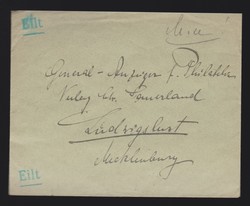 Eilt
General-Anzeiger f. Philatelie
Verlag Sauerland
Ludwigslust
Mecklenburg
Eilt